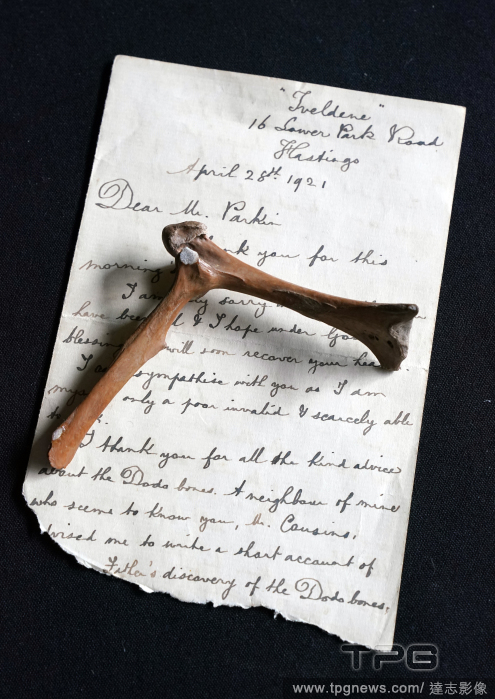 "Iveldene"
16 Lower Park Road
Hastings
April 28th 1921
Dear Mr. Parkin
thank you for this
morning
I am sorry
have been & I hope under
blessing will soon recover your
I sympathise with you as I am
only a poor invalid & scarcely able
I thank you for all the kind advice
about the Dodo bones. A neighbour of mine
who seems to know you, Mr. Cousins,
advised me to write a short account of
Father's discovery of the Dodo bones.
TPG
www.tpgnews.com/ 達志影像